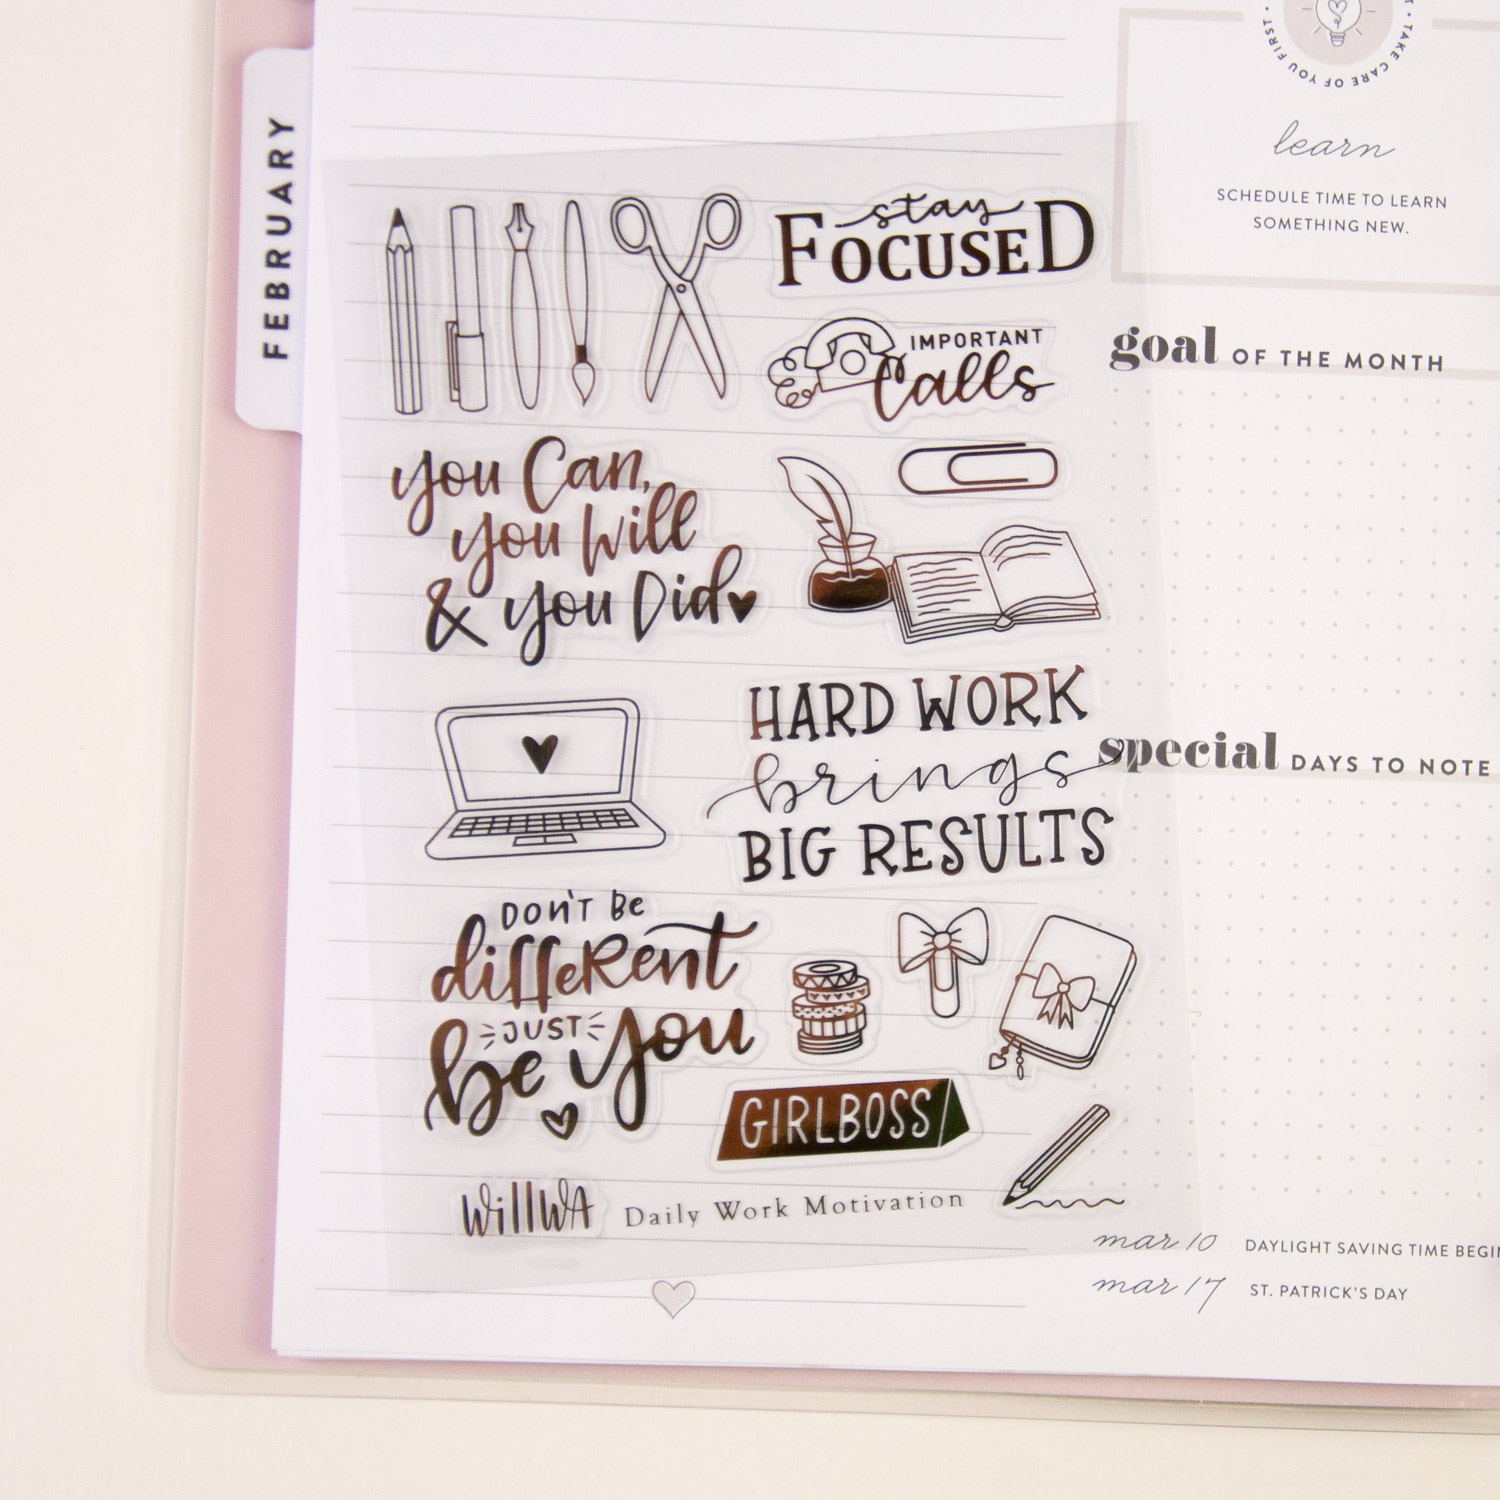 FEBRUARY
stay
FOCUSED
IMPORTANT
Calls
you Can,
you Will
& you Did
HARD WORK
brings
BIG RESULTS
DON'T BE
different
JUST
be you
GIRLBOSS
WillWA
Daily Work Motivation
TAKE CARE OF YOU FIRST
learn
SCHEDULE TIME TO LEARN
SOMETHING NEW.
goal OF THE MONTH
special DAYS TO NOTE
mar 10 DAYLIGHT SAVING TIME BEGIN
mar 17 ST. PATRICK'S DAY